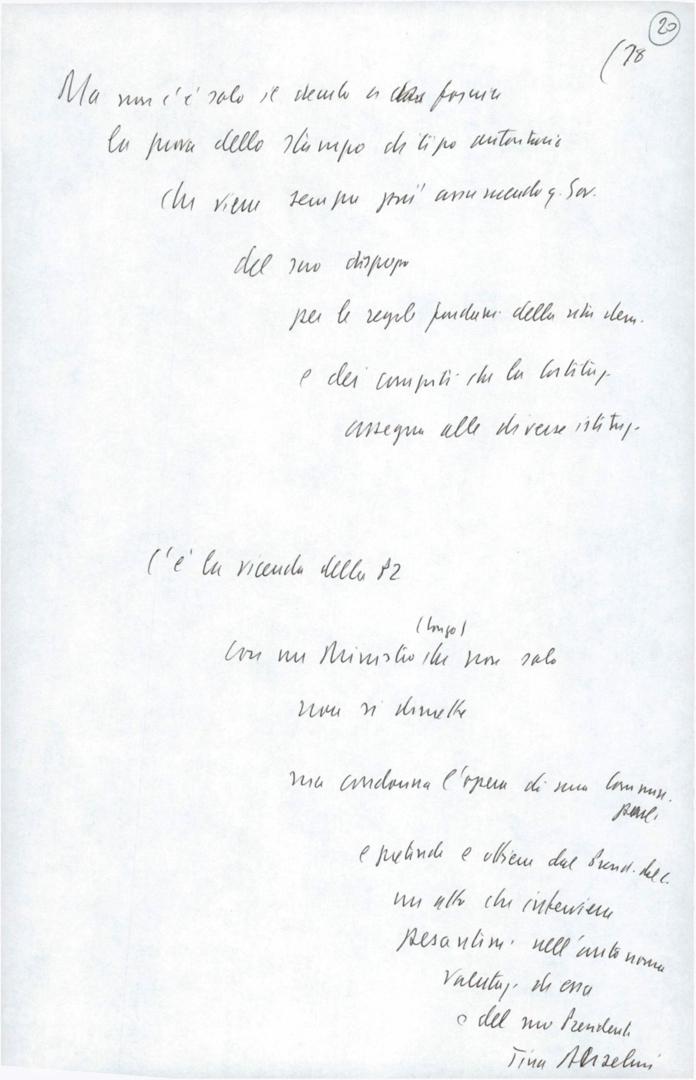 20
(78
Ma non c'è solo il decreto a fornire
la prova dello stampo di tipo autoritario
che viene sempre più assumendo q. Gov.
del suo disprezzo
per le regole fondam. della vita dem.
e dei compiti che la Costituz.
assegna alle diverse istituz.
C'è la vicenda della P2
(Longo)
Con un Ministro che non solo
non si dimette
ma condanna l'opera di una Commiss.
parl.
e pretende e ottiene dal Presid. del C.
un atto che interviene
pesantem. nell'autonoma
valutaz. di essa
e del suo Presidente
Tina Anselmi